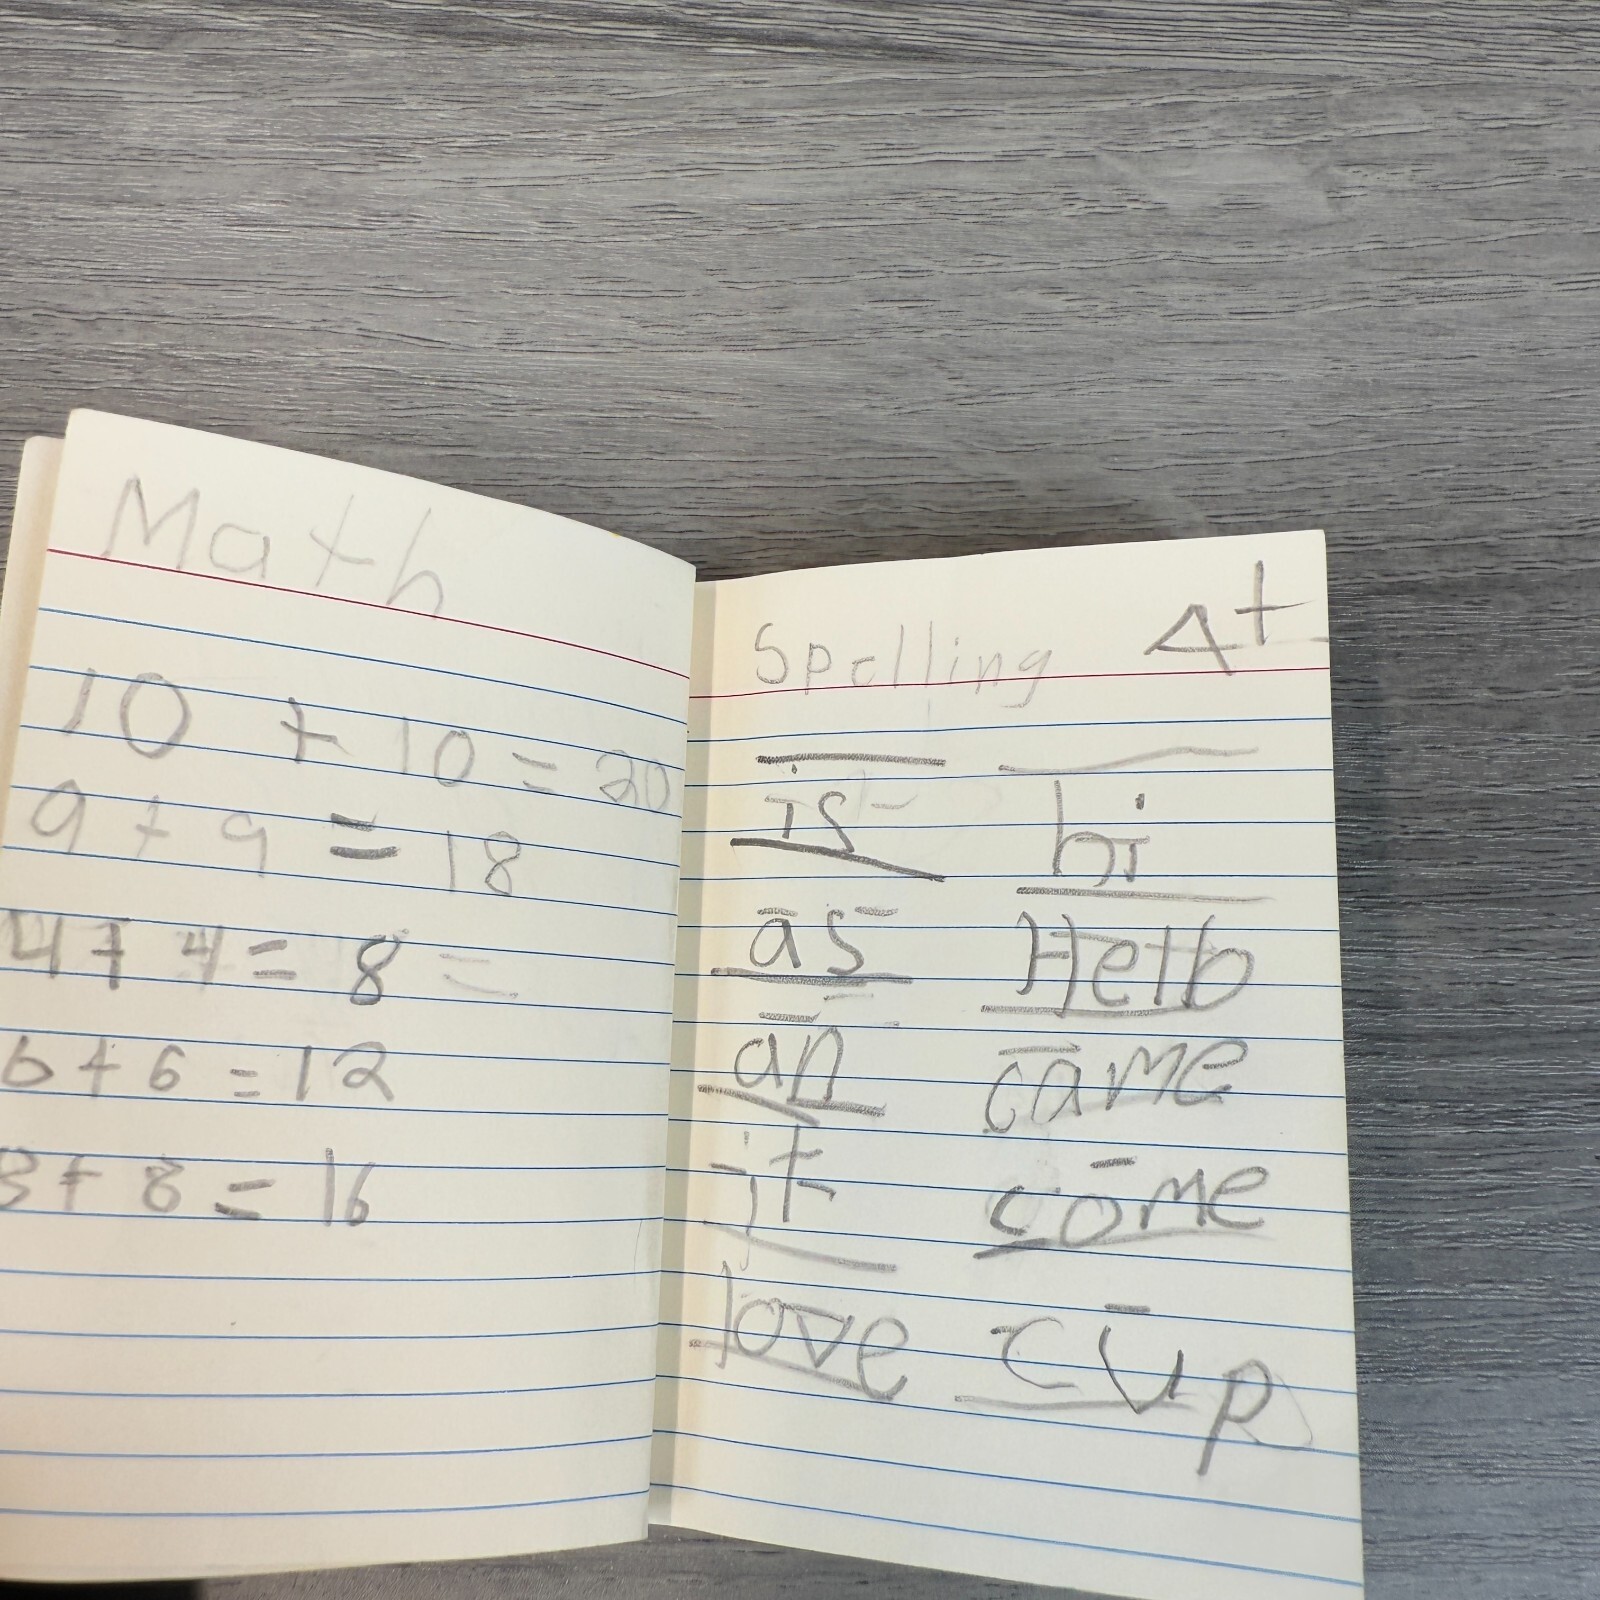 Math
10 + 10 = 20
9 + 9 = 18
4 + 4 = 8 =
6 + 6 = 12
8 + 8 = 16
Spelling A+
is hi
as Hello
an came
it come
love cup